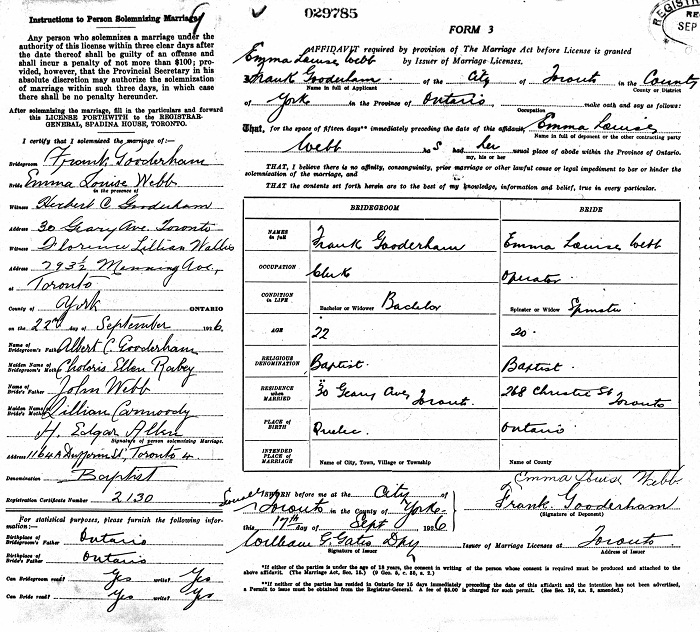 029785
REGISTR
RE
SEP
Instructions to Person Solemnizing Marriage
Any person who solemnizes a marriage under the
authority of this license within three clear days after
the date thereof shall be guilty of an offense and
shall incur a penalty of not more than $100; pro-
vided, however, that the Provincial Secretary in his
absolute discretion may authorize the solemnization
of marriage within such three days, in which case
there shall be no penalty hereunder.
After solemnizing the marriage, fill in the particulars and forward
this LICENSE FORTHWITH TO THE REGISTRAR-
GENERAL, SPADINA HOUSE, TORONTO.
I certify that I solemnized the marriage of:—
Bridegroom Frank Gooderham
Bride Emma Louise Webb
in the presence of
Witness Herbert C Gooderham
Address 30 Geary Ave. Toronto
Witness Florence Lillian Wallis
Address 793½ Manning Ave,
at Toronto
County of York ONTARIO
on the 22nd day of September 1926
Name of Bridegroom's Father Albert C. Gooderham
Maiden Name of Bridegroom's Mother Ellen Rabey
Name of Bride's Father John Webb
Maiden Name of Bride's Mother Lillian
H. Edgar Allen
Signature of person solemnizing Marriage.
Address 1164A Dufferin St, Toronto 4
Denomination Baptist
Registration Certificate Number 2130
For statistical purposes, please furnish the following infor-
mation:—
Birthplace of Bridegroom's Father Ontario
Birthplace of Bride's Father Ontario
Can Bridegroom read? Yes write? Yes
Can Bride read? Yes write? Yes
FORM 3
AFFIDAVIT required by provision of The Marriage Act before License is granted
by Issuer of Marriage Licenses.
Emma Louise Webb
Frank Gooderham of the City of Toronto in the County
Name in full of Applicant County or District
of York in the Province of Ontario make oath and say as follows:
Occupation
That, for the space of fifteen days** immediately preceding the date of this affidavit, Emma Louise
Name in full of deponent or the other contracting party
Webb has had her usual place of abode within the Province of Ontario.
my, his or her
THAT, I believe there is no affinity, consanguinity, prior marriage or other lawful cause or legal impediment to bar or hinder the
solemnization of the marriage, and
THAT the contents set forth herein are to the best of my knowledge, information and belief, true in every particular.
BRIDEGROOM BRIDE
NAMES in full Frank Gooderham Emma Louise Webb
OCCUPATION Clerk Operator
CONDITION in LIFE Bachelor or Widower Bachelor Spinster or Widow Spinster
AGE 22 20
RELIGIOUS DENOMINATION Baptist Baptist
RESIDENCE when MARRIED 30 Geary Ave Toronto 268 Christie St Toronto
PLACE OF BIRTH Quebec Ontario
INTENDED PLACE of MARRIAGE Name of City, Town, Village or Township Name of County
Emma Louise Webb
SWORN before me at the City of
Toronto in the County of York
Frank Gooderham
(Signature of Deponent)
this 17th day of Sept 1926
William G. Gates Dpy Issuer of Marriage Licenses at Toronto
Signature of Issuer Address of Issuer
*If either of the parties is under the age of 18 years, the consent in writing of the person whose consent is required must be produced and attached to the
above affidavit. (The Marriage Act, Sec. 15.)
**If neither of the parties has resided in Ontario for 15 days immediately preceding the date of this affidavit and the intention has not been advertised,
a Permit to issue must be obtained from the Registrar-General. A fee of $5.00 is charged for such permit. (See Sec. 19, s.s. 3, amended.)